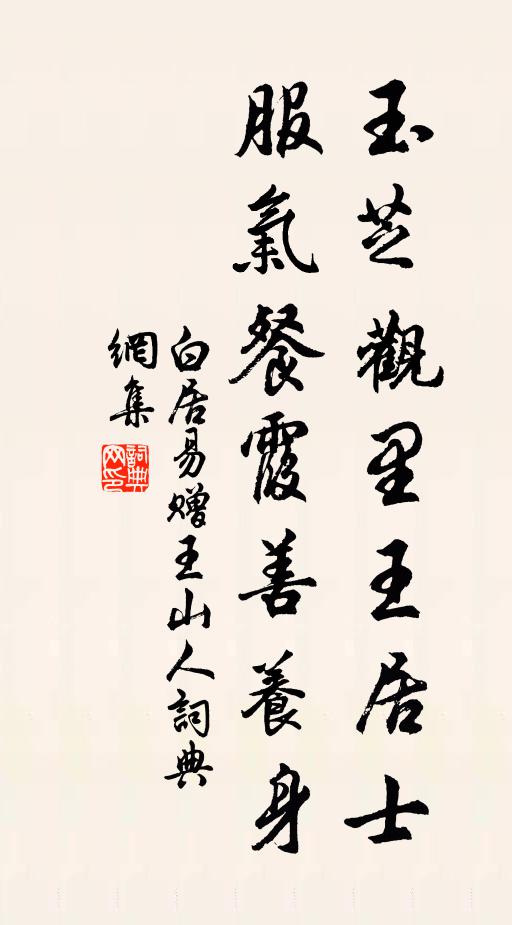 玉芝觀里王居士
服氣餐霞善養身
白居易贈王山人詞典
網集
詞典
网印